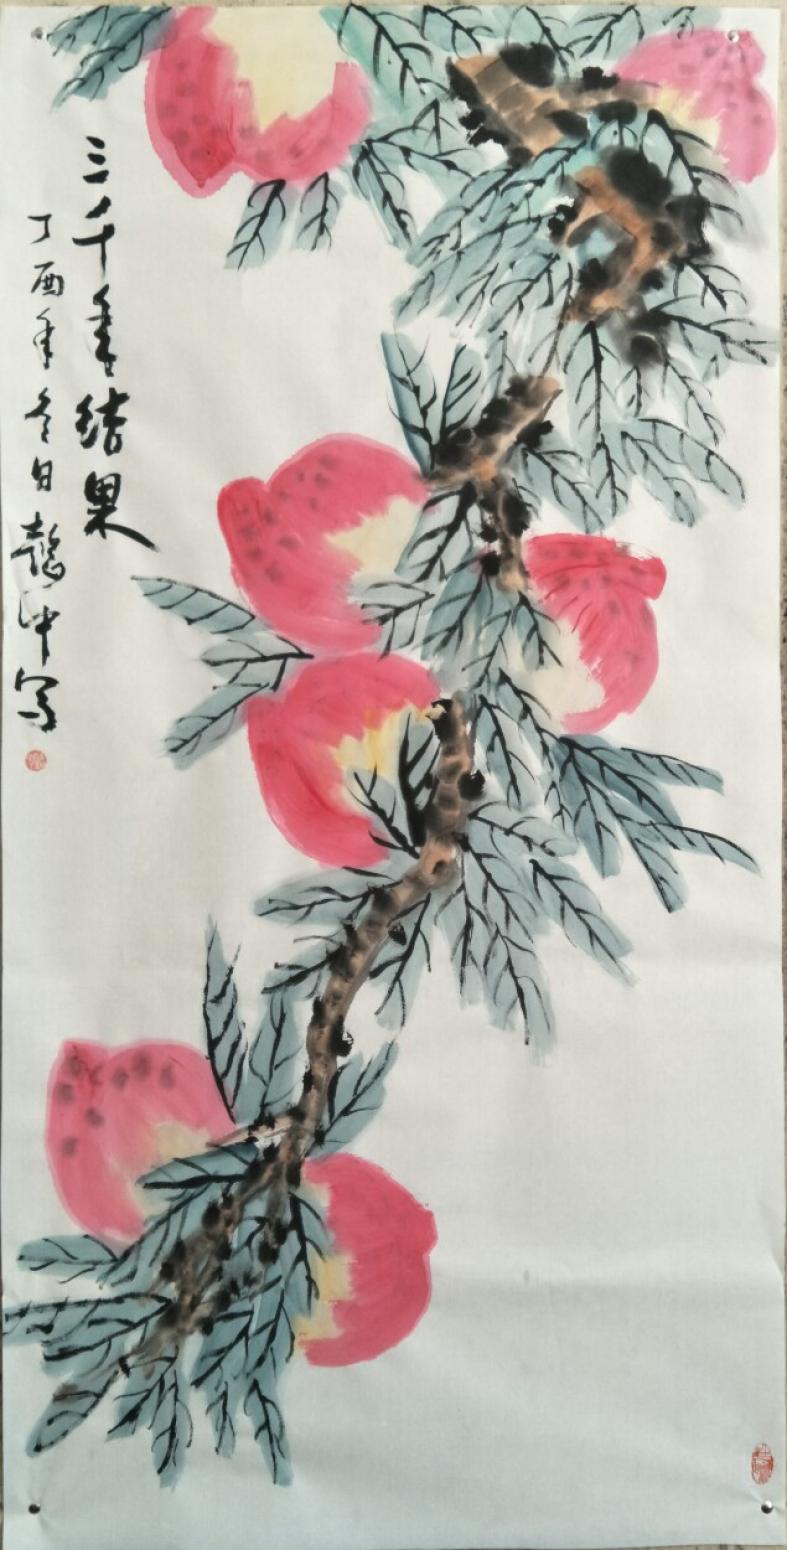 三千年结果
丁酉年冬日懿冲写